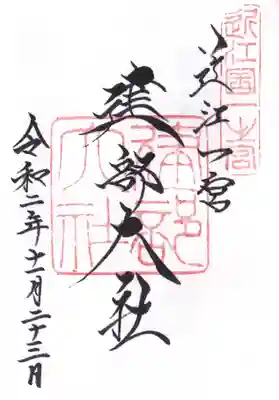 近江国一之宮
近江一宮
建部大社
建部大社
令和二年十一月二十三日